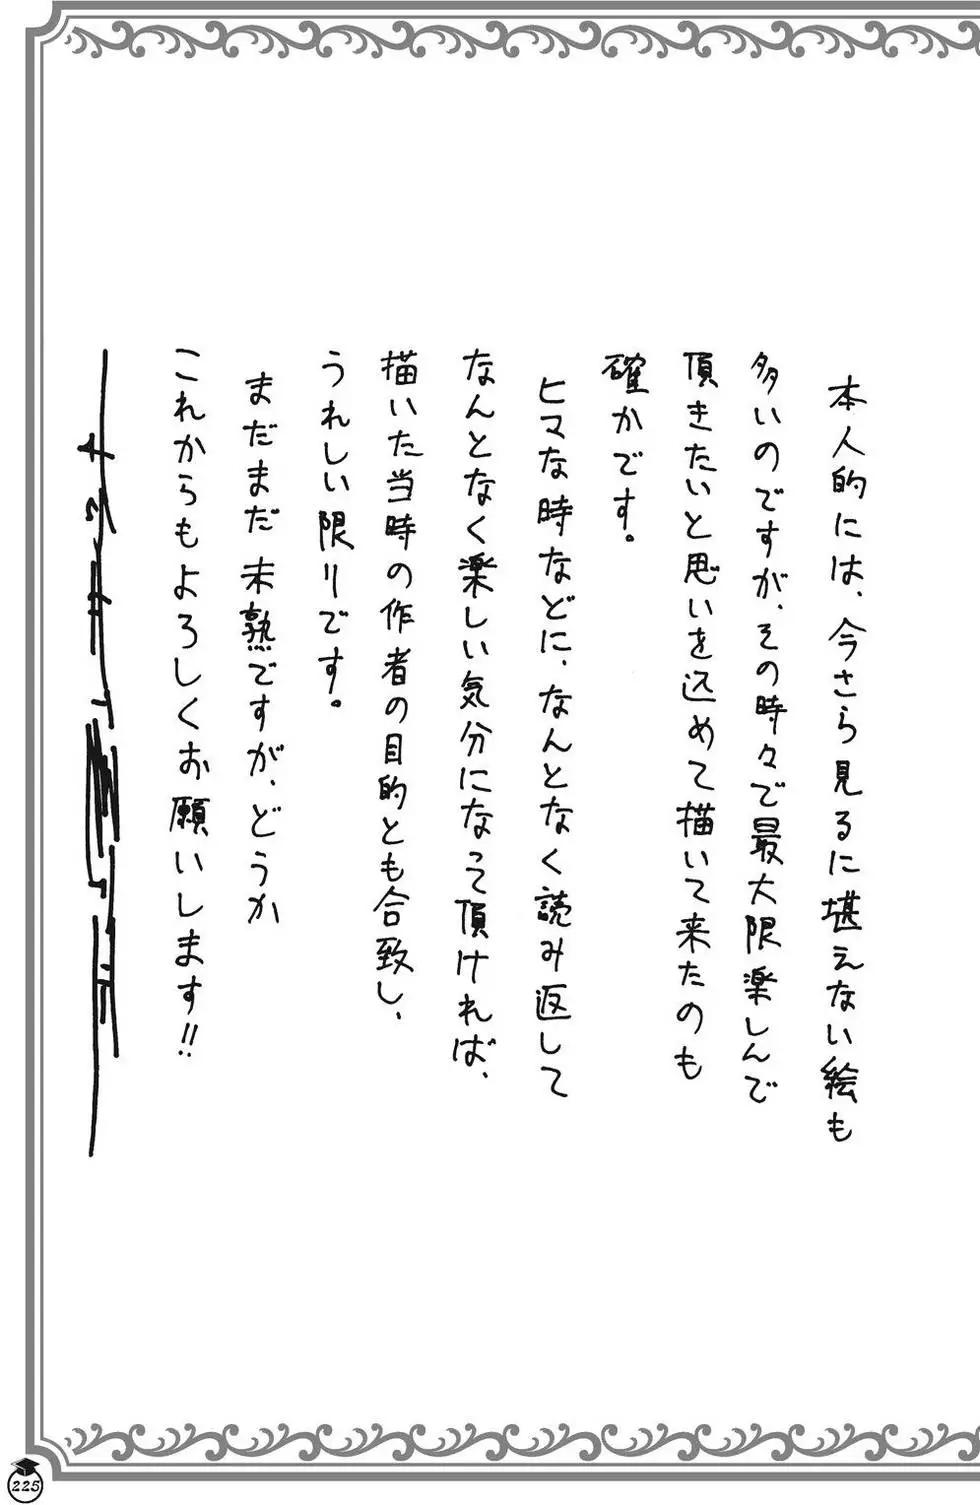 本人的には、今さら見るに堪えない絵も
多いのですが、その時々で最大限楽しんで
頂きたいと思いを込めて描いて来たのも
確かです。
ヒマな時などに、なんとなく読み返して
なんとなく楽しい気分になって頂ければ、
描いた当時の作者の目的とも合致し、
うれしい限りです。
まだまだ未熟ですが、どうか
これからもよろしくお願いします!!
225